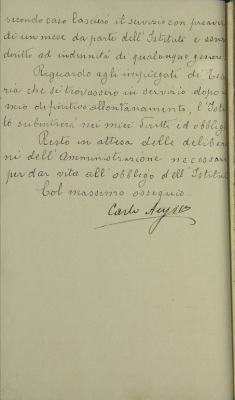 secondo caso lascerò il servizio con preavv
di un mese da parte dell'Istituto e senza
diritto ad indennità di qualunque genere.
Riguardo agli impiegati di
ria che si trovassero in servizio dopo i
mio definitivo allontanamento, l'Isti
to subentrerà nei miei diritti ed obbligh
Resto in attesa delle delibera
ni dell'Amministrazione necessar
per dar vita all'obbligo dell'Istitu
Col massimo ossequio
Carlo